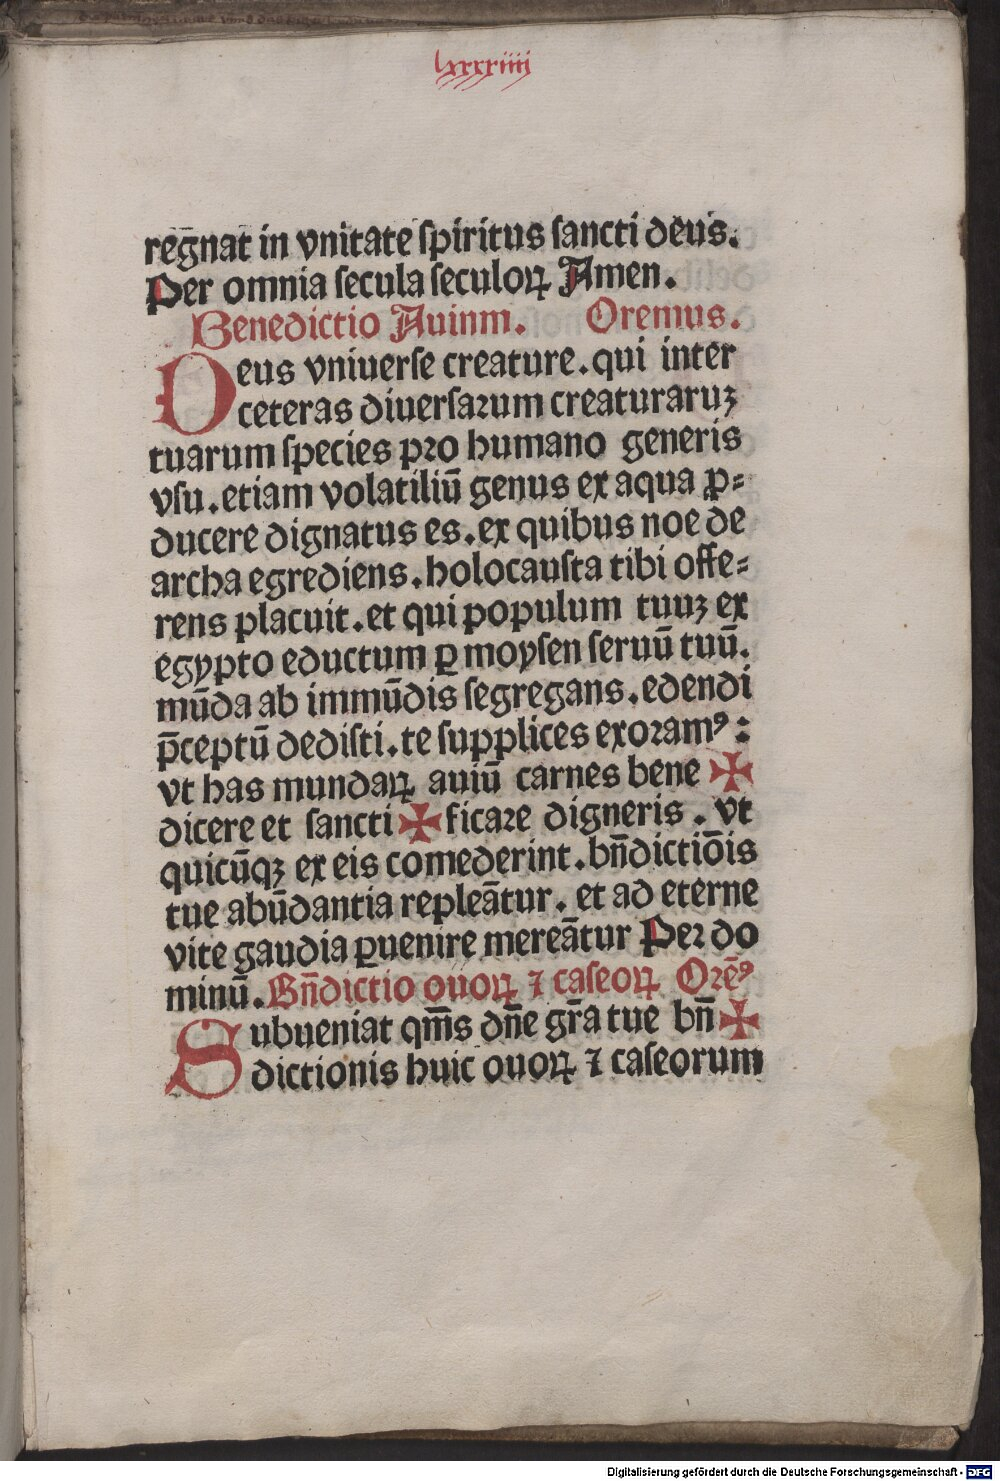 lxxxxiiii
regn̄at in vnitate ſpiritus ſancti deus.
Per omnia ſecula ſeculoꝝ Amen.
Benedictio Auinm. Oremus.
Deus vniuerſe creature. qui inter
ceteras diuerſaꝛum creaturaruꝫ
tuarum ſpecies pꝛo humano generis
vſu. etiam volatiliū genus ex aqua ꝓ⸗
ducere dignatus es. ex quibus noe de
archa egrediens. holocauſta tibi offe⸗
rens placuit. et qui populum tuuꝫ ex
egypto eductum ꝑ moyſen ſeruū tuū.
mūda ab immūdis ſegregans. edendi
p̄ceptū dediſti. te ſupplices exoꝛamꝰ:
vt has mundaꝝ auiū carnes bene ✠
dicere et ſancti ✠ ficaꝛe digneris. vt
quicūqꝫ ex eis comederint. bn̄dictiōis
tue abūdantia repleātur. et ad eterne
vite gaudia ꝑuenire mereātur Peꝛ do
minū. Bn̄dictio ouoꝝ ⁊ caſeoꝝ Oꝛēꝰ
Subueniat qm̄s dn̄e gr̄a tue bn̄ ✠
dictionis huic ouoꝝ ⁊ caſeorum
Digitalisierung gefördert durch die Deutsche Forschungsgemeinschaft - DFG